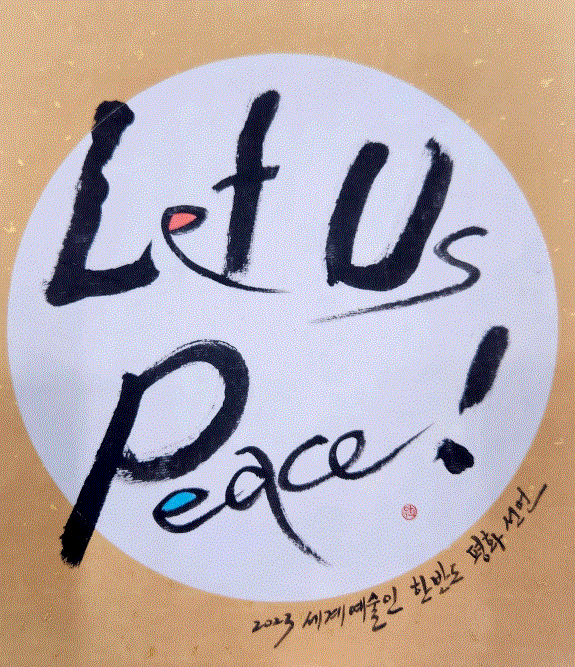 Let Us
Peace!
2023 세계예술인 한반도 평화 선언